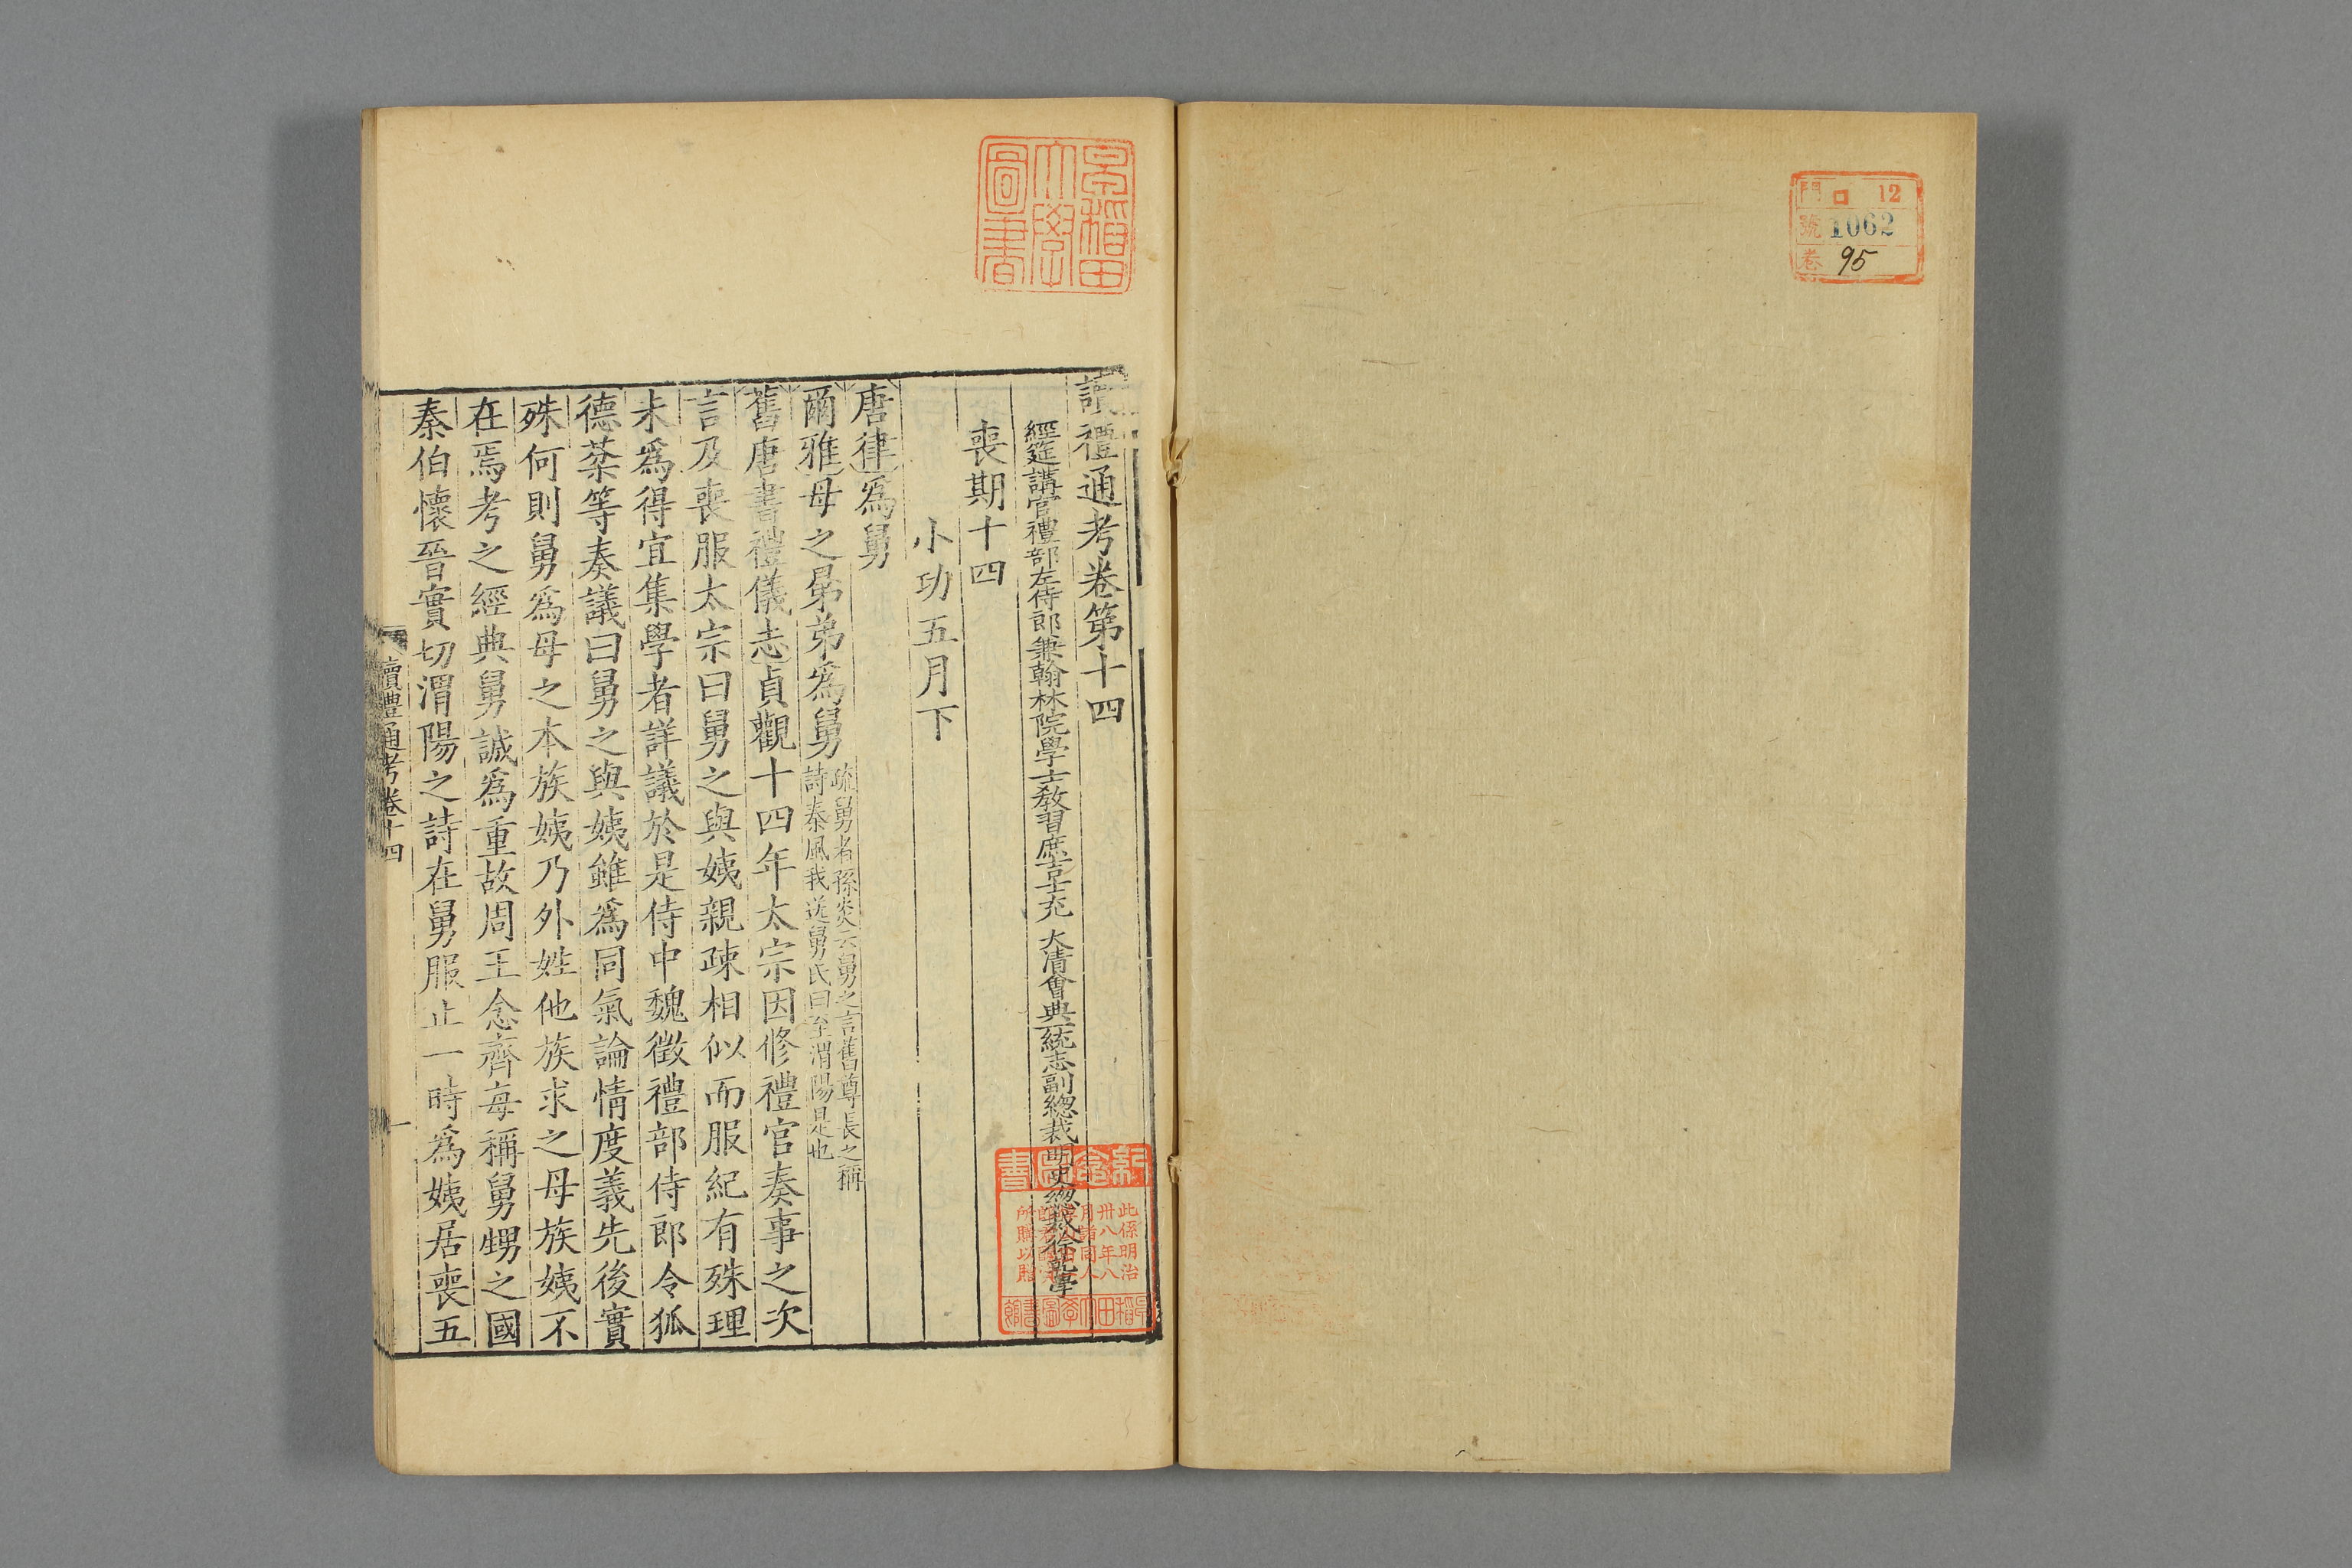 門 ロ 12
號 1062
卷 95
早稲田
大學
圖書
讀禮通考卷第十四
經筵講官禮部左侍郎兼翰林院學士教習庶吉士充 大清會典一統志副總裁明史總裁徐乾學
喪期十四
小功五月下
唐律爲舅
爾雅母之晜弟爲舅
疏舅者孫炎云舅之言舊尊長之稱
詩秦風我送舅氏曰至渭陽是也
舊唐書禮儀志貞觀十四年太宗因修禮官奏事之次
言及喪服太宗曰舅之與姨親疎相似而服紀有殊理
未爲得宜集學者詳議於是侍中魏徵禮部侍郎令狐
德棻等奏議曰舅之與姨雖爲同氣論情度義先後實
殊何則舅爲母之本族姨乃外姓他族求之母族姨不
在焉考之經典舅誠爲重故周王念齊每稱舅甥之國
秦伯懷晉實切渭陽之詩在舅服止一時爲姨居喪五
讀禮通考卷十四
一
此係明治
卅八年八
月諸同人
所購以贈
早稲田大學圖書館